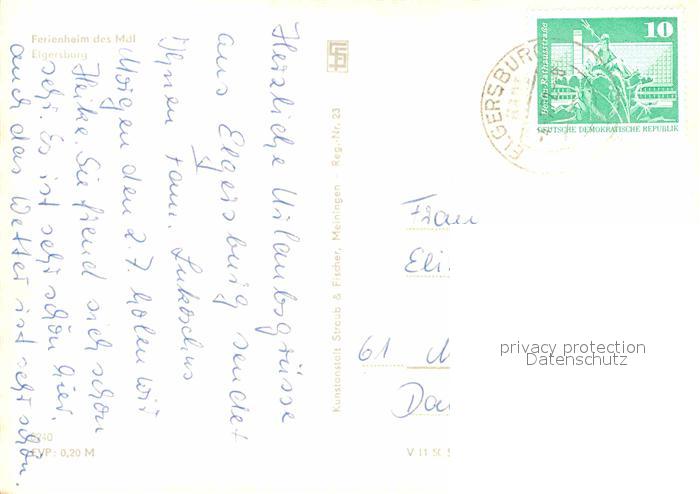 Ferienheim des MdI
Elgersburg
Herzliche Urlaubsgrüsse
aus Elgersburg sendet
Ihnen Fam. Lukoschus
Morgen den 2.7. holen wir
Heike. Sie freud sich schon
sehr. Es ist sehr schön hier,
auch das Wetter ist sehr schön.
EVP: 0,20 M
Kunstanstalt Straub & Fischer, Meiningen - Reg.-Nr. 23
V 11 50
ELGERSBURG
10
Berlin, Rathausstraße
DEUTSCHE DEMOKRATISCHE REPUBLIK
Frau
Eli
61 M
Do
privacy protection
Datenschutz